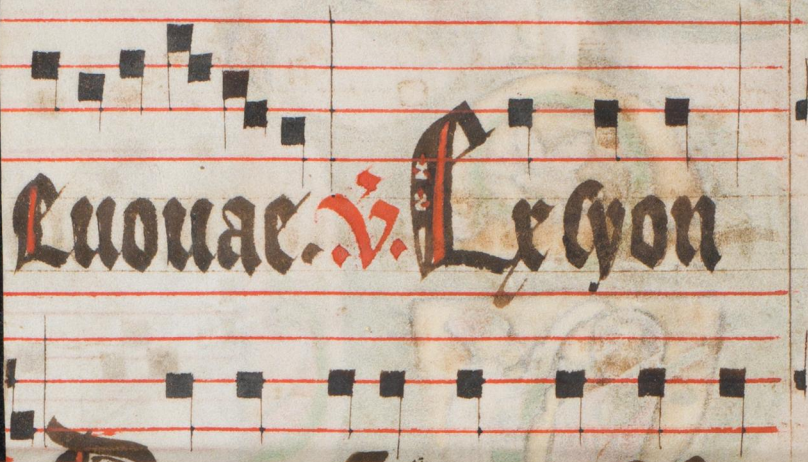 Euouae. v. Ex syon